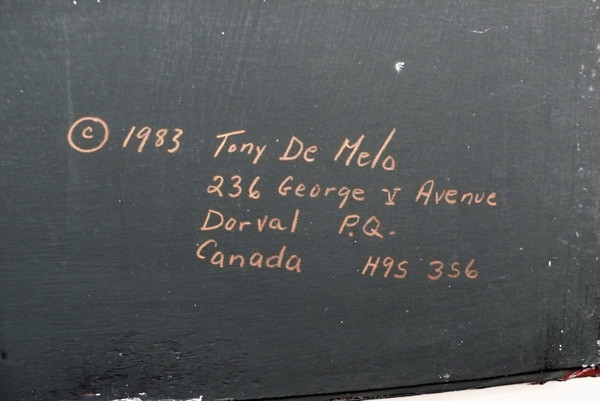 © 1983 Tony De Melo
236 George V Avenue
Dorval P.Q.
Canada H9S 3S6